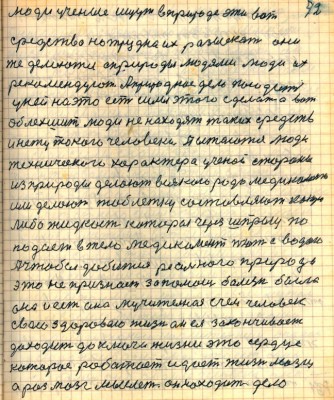 72
люди учение ищут в природе эти вот
средство но трудна их разыскат они
же делаюти априроды людями люди их
рекомендуют Априродное дело
у ней на это ест силы этого сделат а вот
облехшит люди не находят таких средств
инету токого человека Апытаютса люди
технического характера ученой стораны
изприроды делают всякого рода медикаменты
или делают таблетку составляют
либо жидкост которая через шпрыц по
подаёт в тело медикамент тот с водою
Ачтобы добится реалного природъ
это не признает запомощ балезн была
она и ест она мучителная с чем человек
своего здоровою жизн ансл закончивает
доходит до ключа жизни это сердце
которое работает идает жизн мозгу
а раз мозг мыслет он находит дело